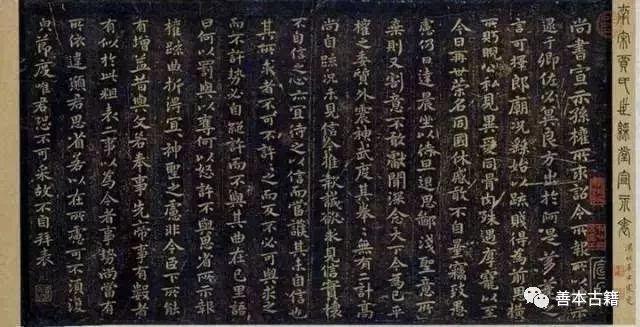 南宋賈氏世綵堂宣示表
尚書宣示孫權所求詔令所報所以博示
逮于卿佐必冀良方出於阿是芻蕘之
言可擇郎廟況繇始以疏賤得為前恩橫
所盱睨公私見異愛同骨肉殊遇厚寵以至
今日再世榮名同國休慼敢不自量竊致愚
慮仍日達晨坐以待旦退思鄙淺聖意所
棄則又割意不敢獻聞深念天下今為已平
權之委質外震神武度其拳拳無有二計高
尚自疏況未見信今推款誠欲求見信實懷
不自信之心亦宜待之以信而當護其未自信也
其所求者不可不許許之而反不必可與求之
而不許勢必自絕許而不與其曲在己里語
曰何以罰與以奪何以怒許不與思省所示報
權疏曲折得宜宜神聖之慮非今臣下所能
有增益昔與文若奉事先帝事有數者
有似於此粗表二事以為今者事勢尚當有
所依違願君思省若以在所慮可不須後
奉節度唯君恐不可采故不自拜表
善本古籍